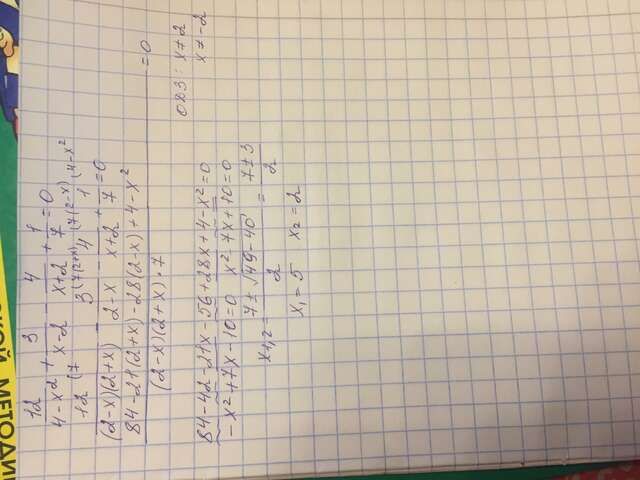 12/(4-x²) + 3/(x-2) - 4/(x+2) + 1/7 = 0
12^(7/((2-x)(2+x)) - 3^(7(2+x)/(2-x) - 4^(7(2-x)/(x+2) + 1^(4-x²/7 = 0
(84-21(2+x)-28(2-x)+4-x²)/((2-x)(2+x)·7) = 0
ОДЗ: x≠2
x≠-2
84-42-21x-56+28x+4-x²=0
-x²+7x-10=0 x² 7x+10=0
x₁,₂ = (7±√49-40)/2 = (7±3)/2
x₁=5 x₂=2
СКОЙ МЕТОДИ